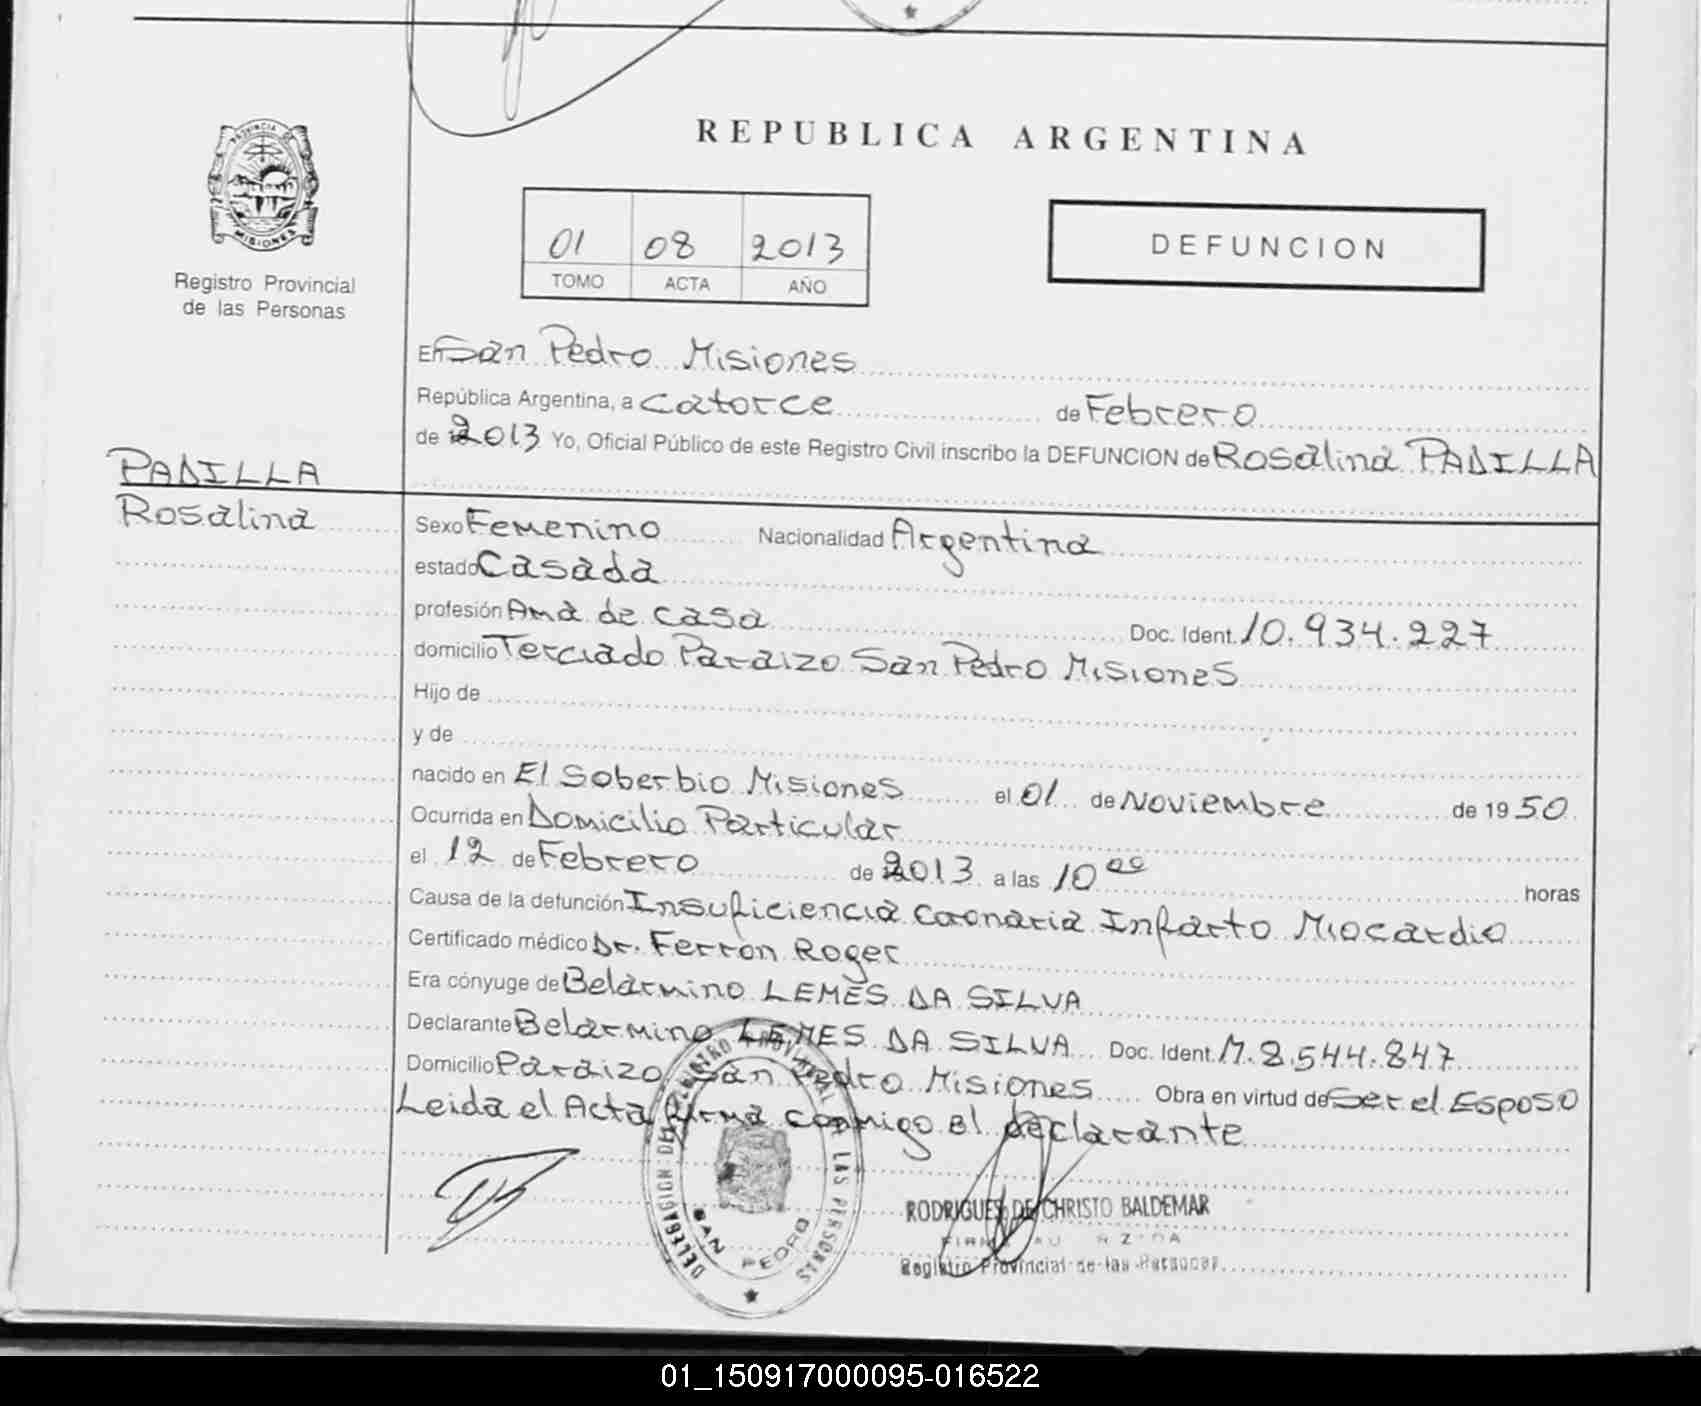 REPUBLICA ARGENTINA
PROVINCIA DE
MISIONES
Registro Provincial
de las Personas
01 08 2013
TOMO ACTA AÑO
DEFUNCION
En San Pedro Misiones
República Argentina, a Catorce de Febrero
de 2013 Yo, Oficial Público de este Registro Civil inscribo la DEFUNCION de Rosalina PADILLA
PADILLA
Rosalina
Sexo Femenino Nacionalidad Argentina
estado Casada
profesión Ama de casa Doc. Ident. 10.934.227
domicilio Terciado Paraizo San Pedro Misiones
Hijo de
y de
nacido en El Soberbio Misiones el 01 de Noviembre de 1950
Ocurrida en Domicilio Particular
el 12 de Febrero de 2013 a las 10 00 horas
Causa de la defunción Insuficiencia coronaria Infarto Miocardio
Certificado médico Dr. Ferron Roger
Era cónyuge de Belarmino LEMES DA SILVA
Declarante Belarmino LEMES DA SILVA Doc. Ident. M.8.544.847
Domicilio Paraizo San Pedro Misiones Obra en virtud de Ser el Esposo
Leida el Acta firma conmigo el Declarante
DELEGACION DEL REGISTRO PROVINCIAL DE LAS PERSONAS
SAN PEDRO
RODRIGUES DE CHRISTO BALDEMAR
Registro Provincial de las Personas
01_150917000095-016522